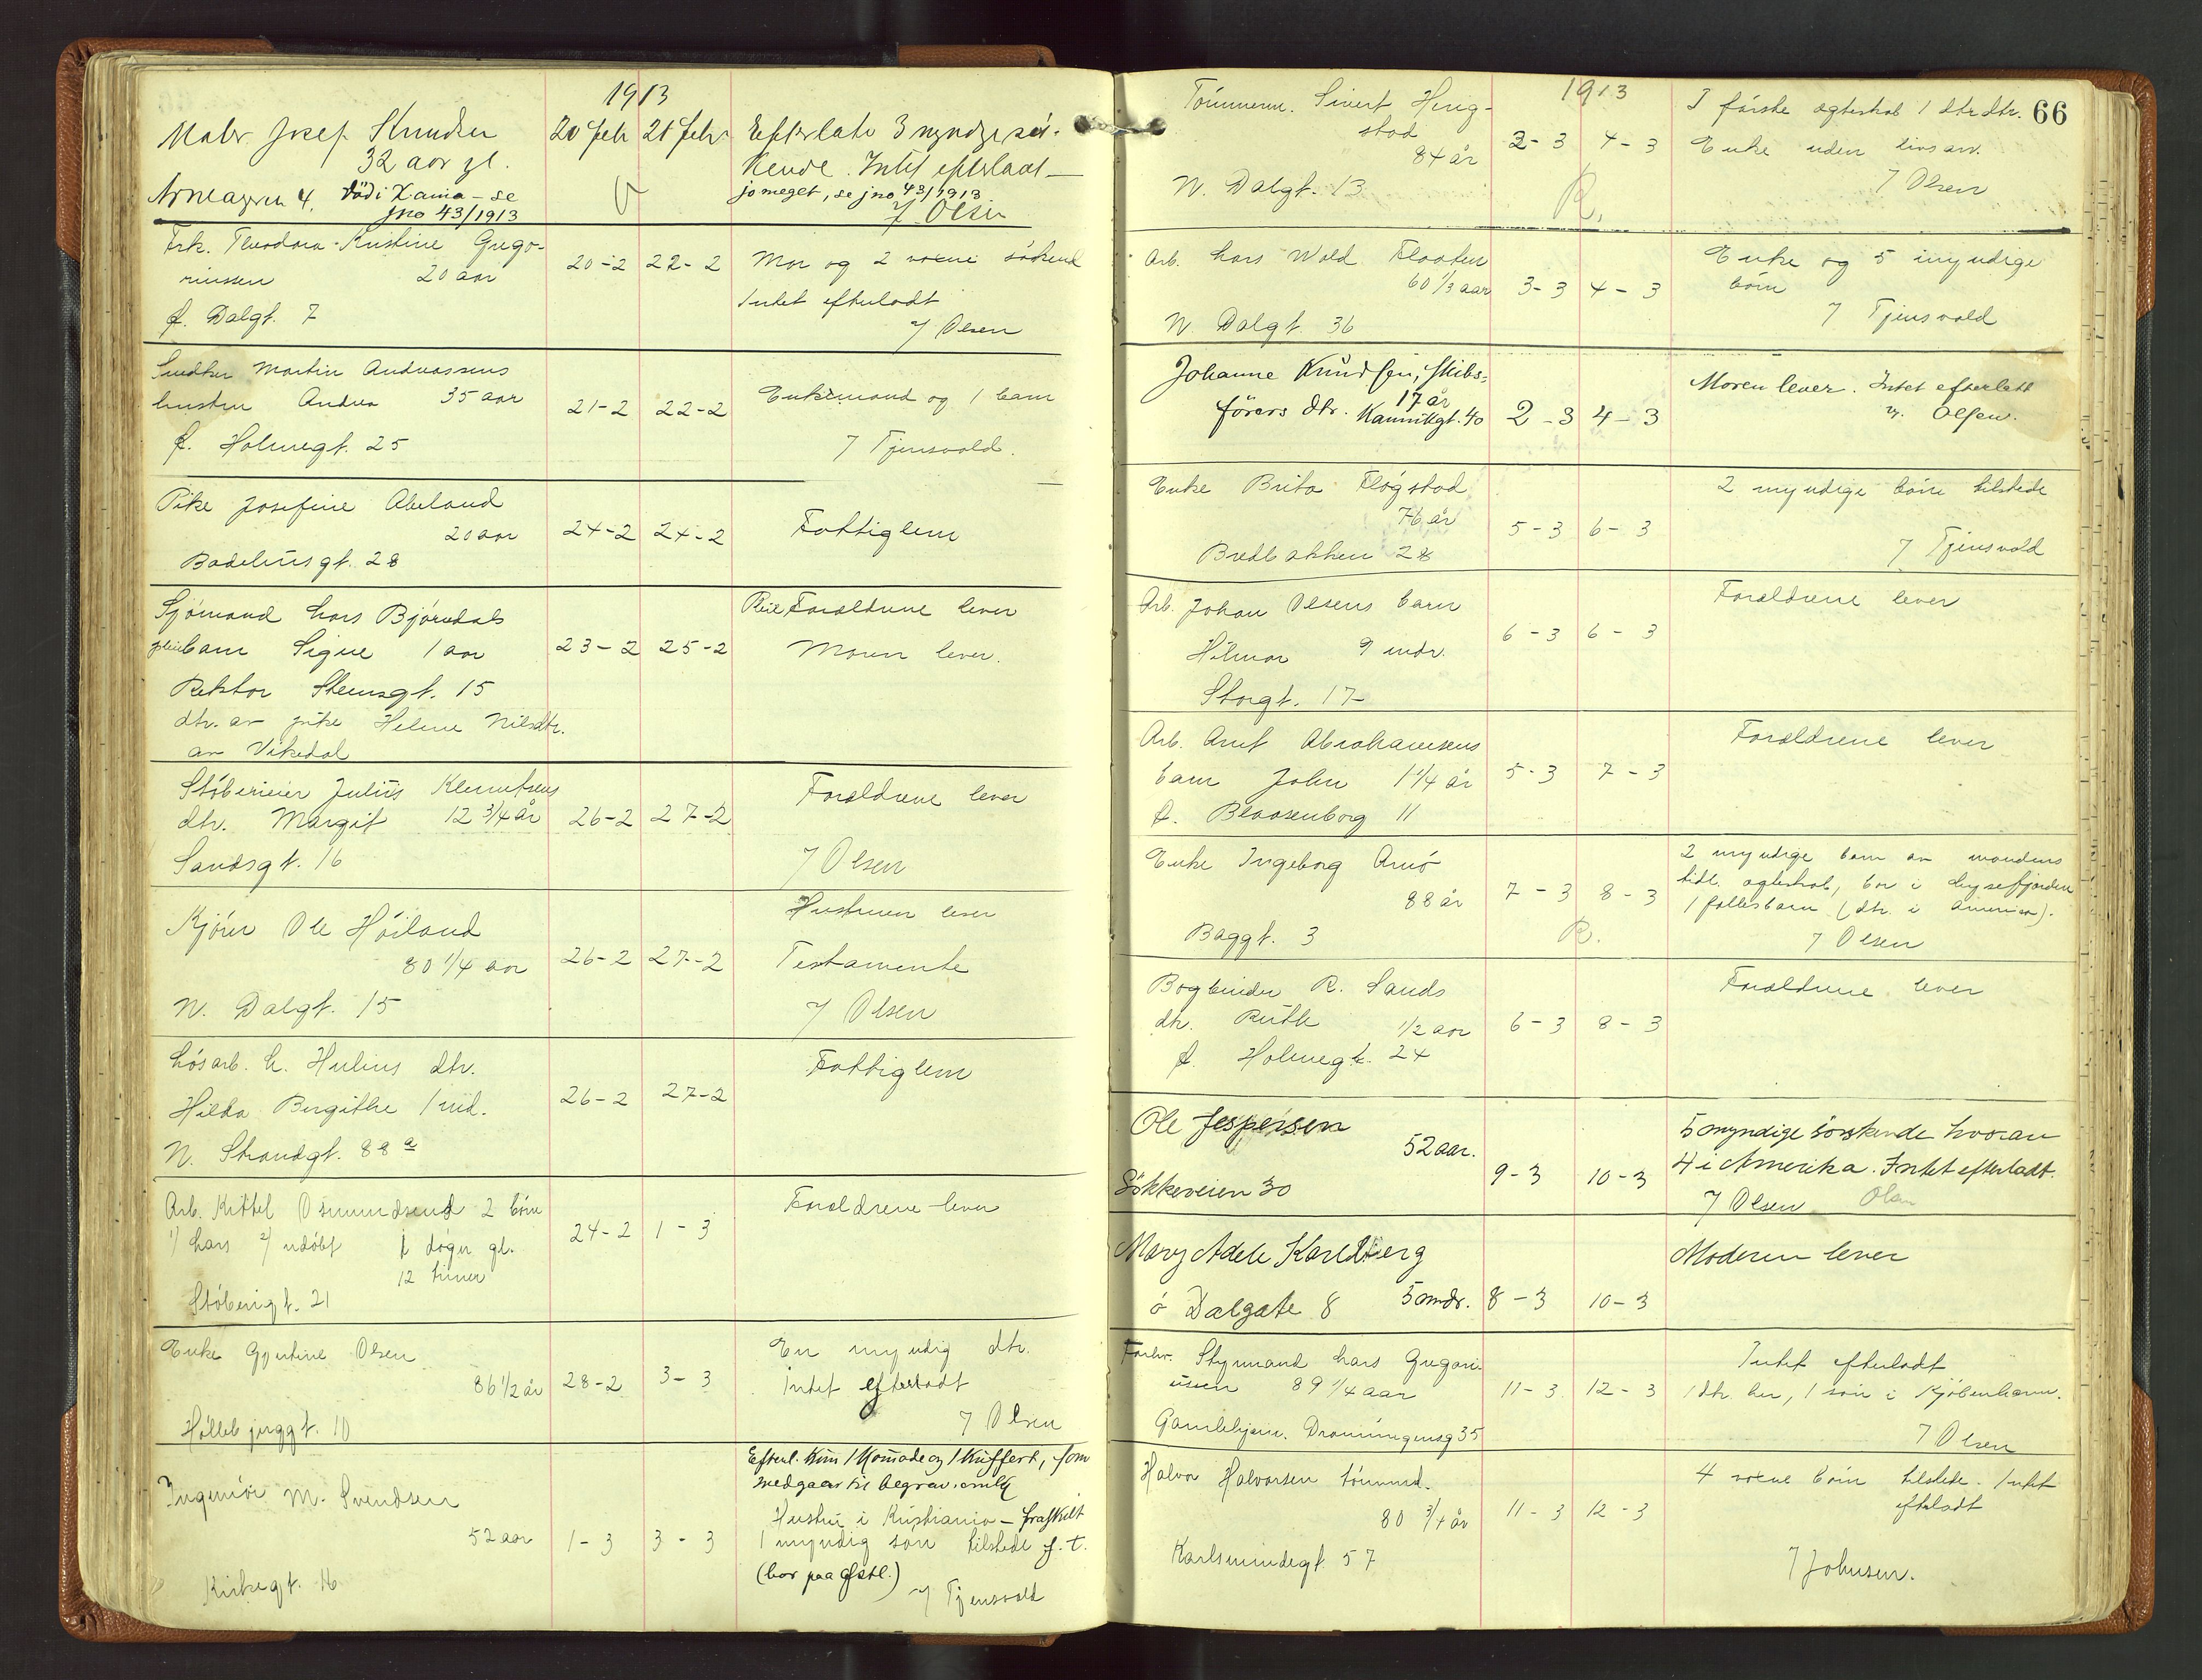 1913
Maler Josef Knudsen
32 aar gl.
20 febr 21 febr
Efterlate 3 myndige søs-
kende. Intet efterladt
jo meget, se jno 43/1913
7 Olsen
4. Död i Xania – se
jno 43/1913
Frk. Theodora Kristine Grego-
riussen 20 aar
ø. Dalgt. 7
20-2 22-2
Mor og 2 voxne söskend
Intet efterladt
7 Olsen
Snedker Martin Andreassens
hustru Andrea 35 aar
ø. Holmegt. 25
21-2 22-2
Enkemand og 1 barn
7 Tjensvold.
Pike Josefine Abeland
20 aar
Badehusgt. 28
24-2 24-2
Fattiglem
Sjömand Lars Bjørndals
pleiebarn Signe 1 aar
Rektor Steensgt. 15
dtr. av pike Helene Nilsdtr.
av Vikedal
23-2 25-2
Pleieforældrene lever
Moren lever.
Støberieier Julius Klemetsens
dtr. Margit 12 3/4 år
Sandsgt. 16
26-2 27-2
Forældrene lever
7 Olsen
Kjører Ole Höiland
80 1/4 aar
N. Dalgt. 15
26-2 27-2
Hustruen lever
Testamente
7 Olsen
Løsarb. L. Hulius dtr.
Hilda Bergithe 1 md.
N. Strandgt. 88 a
26-2 27-2
Fattiglem
Arb. Kittel Osmundsens 2 börn
1/ Lars 2/ udöbt 1 døgn gl.
12 timer
Støberigt. 21
24-2 1-3
Forældrene lever
Enke Gjertine Olsen
86 1/2 år
10
28-2 3-3
En myndig dtr.
Intet efterladt
7 Olsen
Ingeniör M. Svendsen
52 aar
Kirkegt. 16
1-3 3-3
Efterl. kun 1 Komode og 1 Kuffert, som
medgaar til begrav. omk.
Hustru i Kristiania – fraskilt
1 myndig sön tilstede f. t.
(bor paa Gjstl.)
7 Tjensvold
66
1913
Tömmerm. Sivert Heng-
stad
84 år
N. Dalgt. 13
2-3 4-3
R.
I förste ægteskab 1 dtr dtr.
Enke uden livsarv.
7 Olsen
Arb. Lars Wold Flaaten
60 1/3 aar
N. Dalgt. 36
3-3 4-3
Enke og 5 myndige
börn
7 Tjensvold
Johanne Knudsen, Skibs-
förers dtr. 17 år
Kannikgt. 40
2-3 4-3
Moren lever. Intet efterladt
7. Olsen.
Enke Brita Fløgstad
76 år
Bredbakken 28
5-3 6-3
2 myndige börn tilstede
7 Tjensvold
Arb. Johan Olsens barn
Hilmar 9 mdr.
Storgt. 17
6-3 6-3
Forældrene lever
Arb. Arnt Abrahamsens
barn John 1 1/4 år
ø. Blaasenborg 11
5-3 7-3
Forældrene lever
Enke Ingeborg Arnö
88 år
Baggt. 3
7-3 8-3
R.
2 myndige barn av mandens
tidl. ægteskab, bor i Lysefjorden
1 fællesbarn (dtr. i Amerika).
7 Olsen
Bogbinder R. Sands
dtr. Ruth 1/2 aar
ø. Holmegt. 24
6-3 8-3
Forældrene lever
Ole Jespersen
52 aar.
Søkkeveien 30
9-3 10-3
5 myndige söskende hvorav
4 i Amerika. Intet efterladt.
7 Olsen Olsen
Mary Adele Karlberg
ö Dalgate 8 5 mdr.
8-3 10-3
Moderen lever
Forhv. Styrmand Lars Gregori-
ussen 89 1/4 aar
Gamlehjem. Dronningensg 35
11-3 12-3
Intet efterladt
1 dtr. her, 1 sön i Kjöbenhavn.
7 Olsen
Halvor Halvorsen tömmerm.
80 3/4 år
Karlsmindegt. 57
11-3 12-3
4 voxne börn tilstede. Intet
efterladt
7 Johnsen.